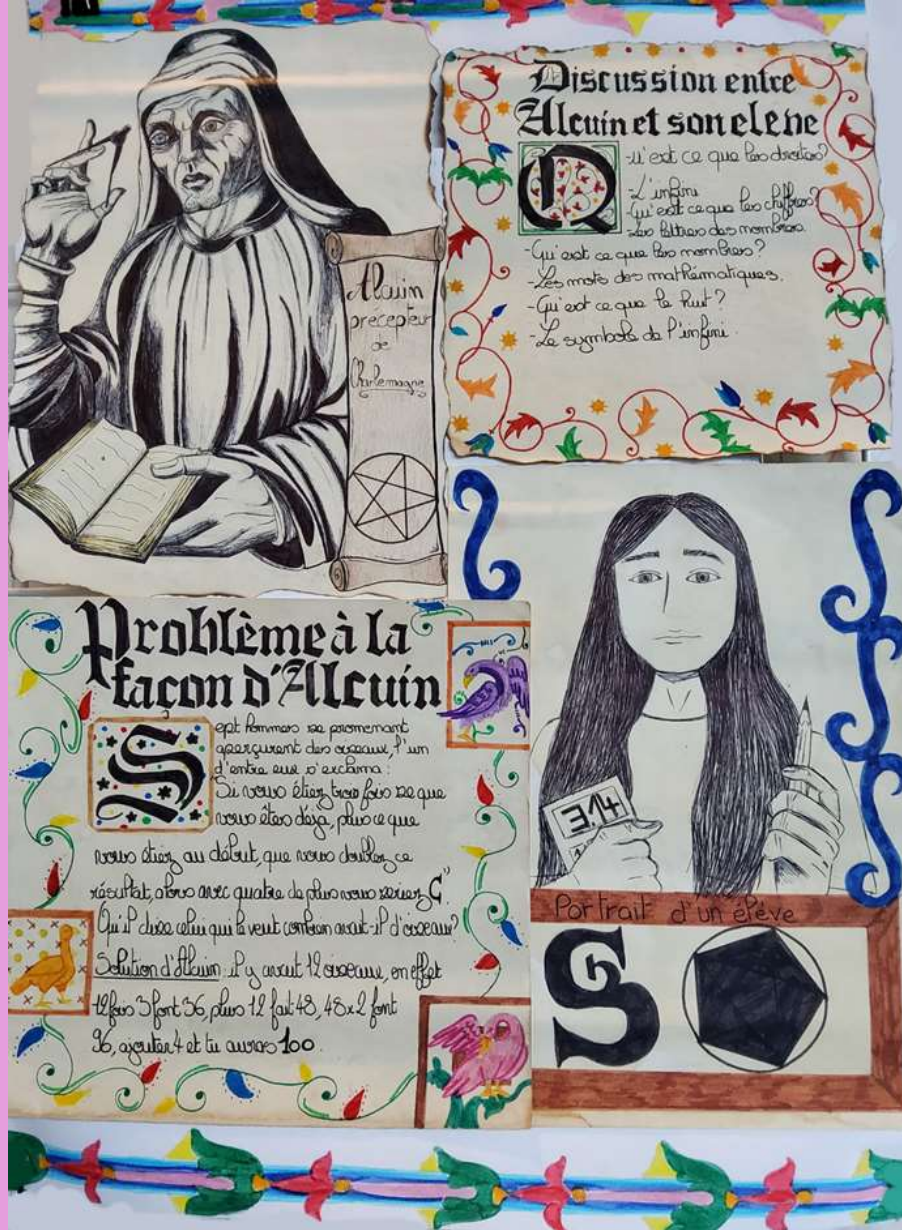 Alcuin
précepteur
de
Charlemagne
Discussion entre
Alcuin et son eleve
Qu'est ce que les droites?
-L'infini
-Qu'est ce que les chiffres?
-Les lettres des nombres
-Qu'est ce que les nombres?
-Les mots des mathématiques.
-Qu'est ce que le huit?
-Le symbole de l'infini.
Problème à la
façon d'Alcuin
Sept hommes se promenant
aperçurent des oiseaux, l'un
d'entre eux s'exclama:
Si vous étiez trois fois ce que
vous êtes déja, plus ce que
vous étiez au début, que vous doublez ce
résultat, alors avec quatre de plus vous seriez C"
Qu'il dise celui qui le veut combien avait-il d'oiseaux?
Solution d'Alcuin: il y avait 12 oiseaux, en effet
12 fois 3 font 36, plus 12 fait 48, 48x2 font
96, ajouter 4 et tu auras 100.
3.14
Portrait d'un élève
S